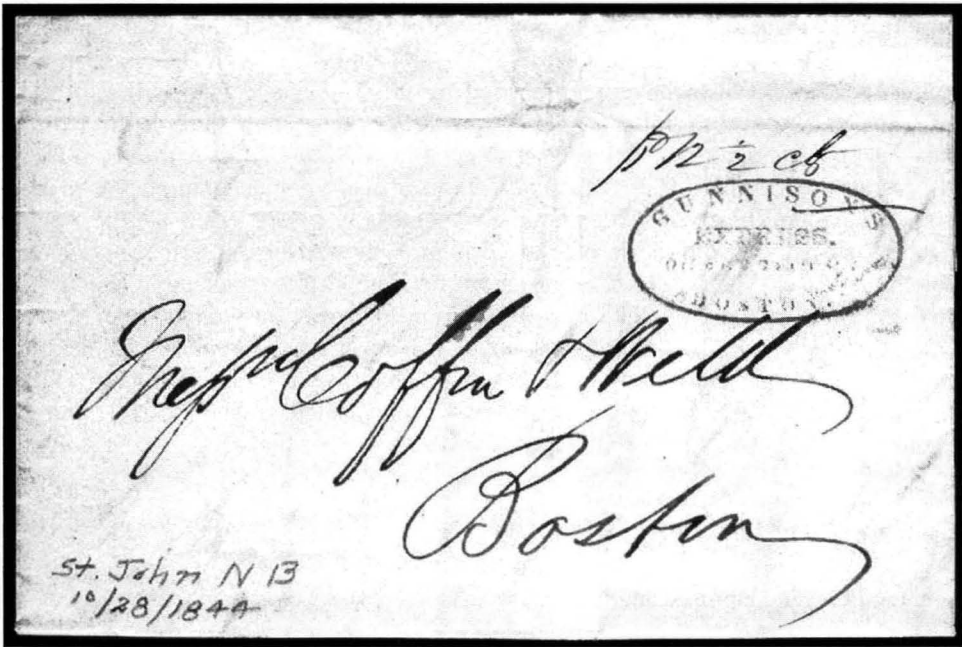 12 ½ cts
GUNNISON'S
EXPRESS.
BOSTON.
Messrs Coffin & Weld
Boston
St. John N B
10/28/1844